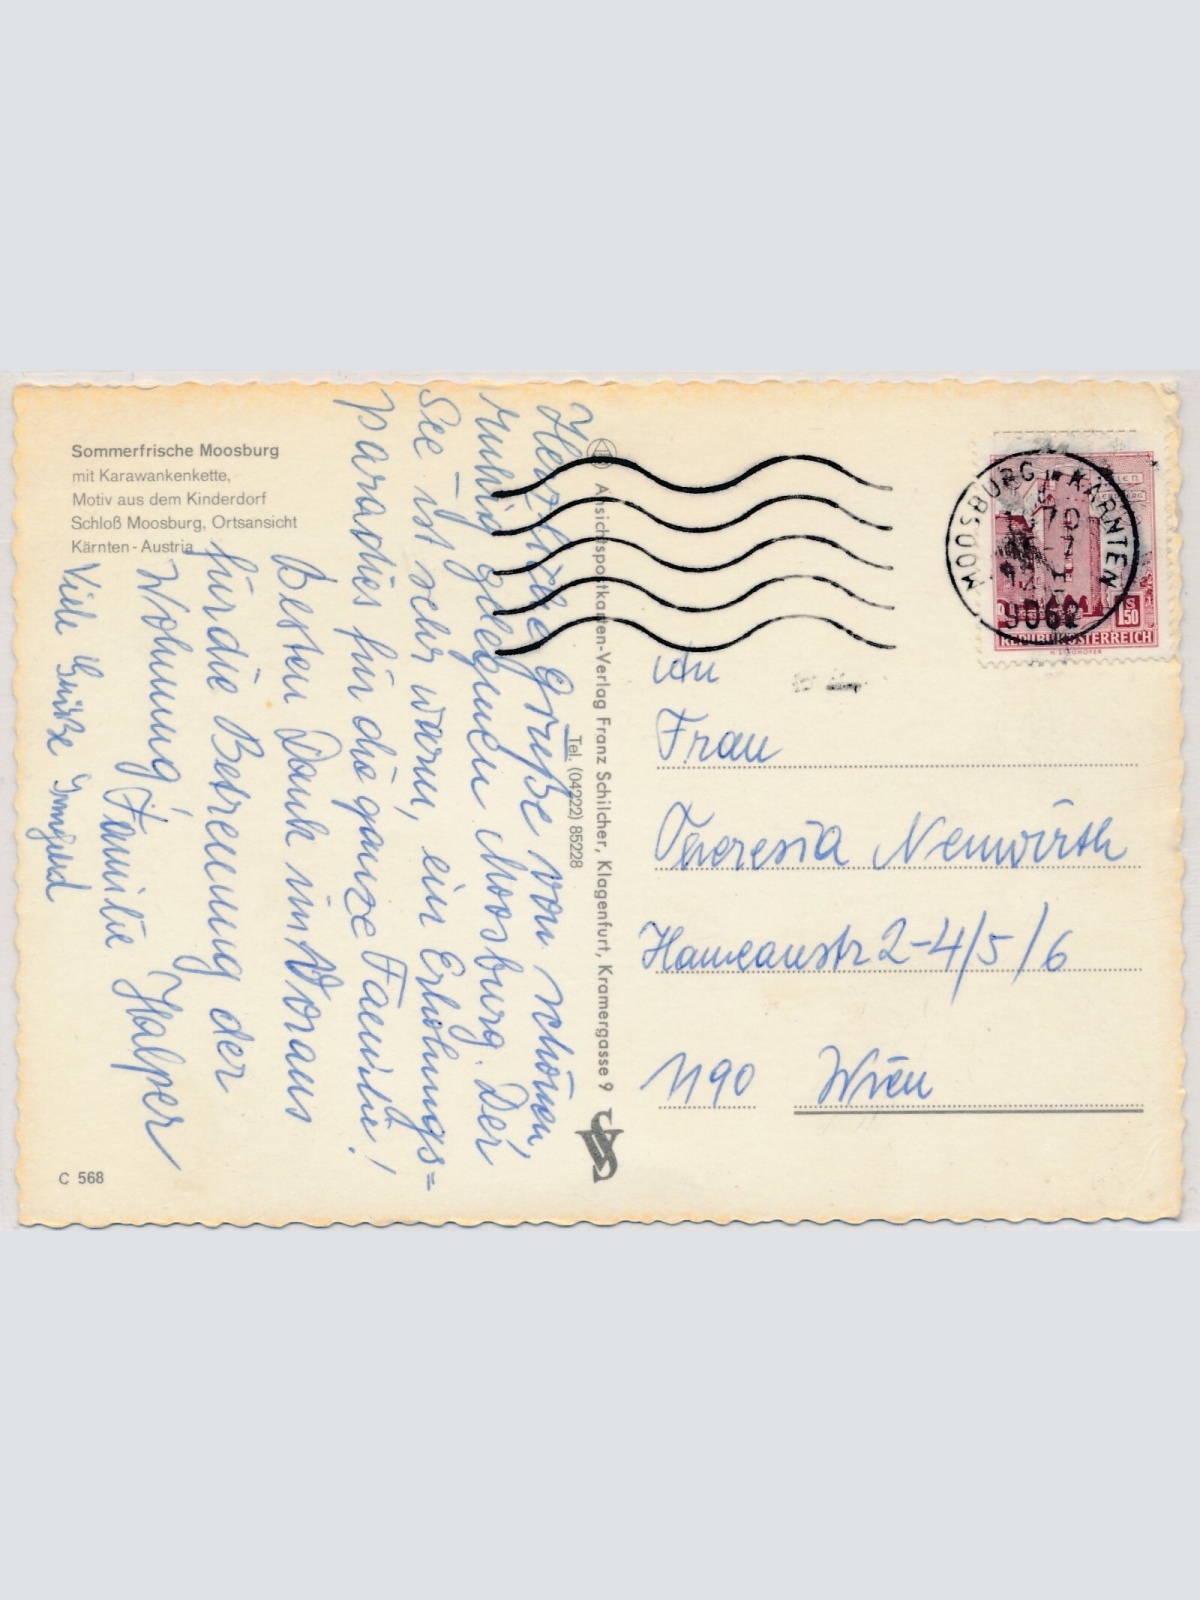 Sommerfrische Moosburg
mit Karawankenkette,
Motiv aus dem Kinderdorf
Schloß Moosburg, Ortsansicht
Kärnten - Austria
Herzliche Grüße vom schönen,
ruhig gelegenen Moosburg. Der
See ist sehr warm, ein Erholungs=
paradies für die ganze Familie!
Besten Dank im Voraus
für die Betreuung der
Wohnung, Familie Halper
Viele Grüße Irmgard
C 568
Ansichtspostkarten-Verlag Franz Schilcher, Klagenfurt, Kramergasse 9
Tel. (04222) 85228
MOOSBURG in KÄRNTEN
70
9062
S 1,50
REPUBLIK ÖSTERREICH
An
Frau
Theresia Neuwirth
Hameaustr 2-4/5/6
1190 Wien